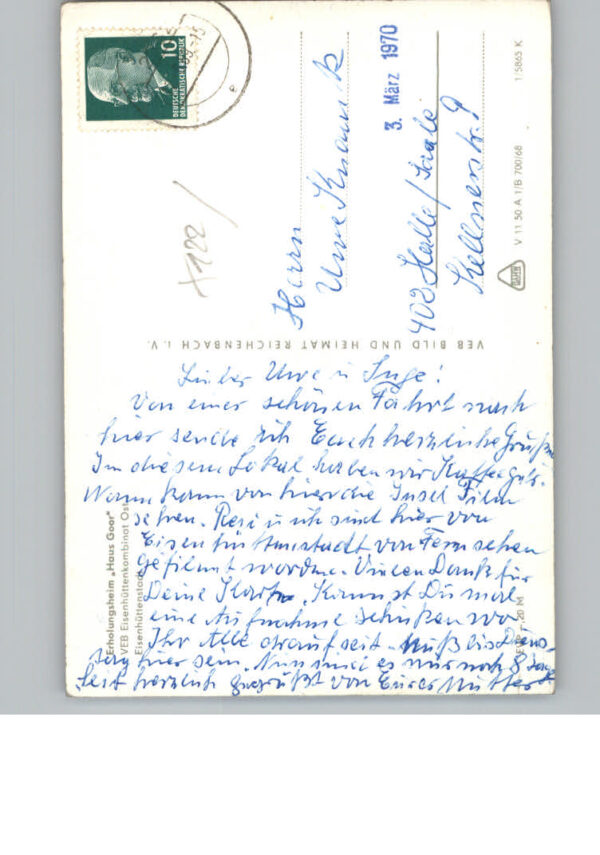 Lieber Uwe u Inge!
Von einer schönen Fahrt nach
hier sende ich Euch herzliche Grüße
In diesem Lokal haben wir Kaffee getr.
kann von hier die Insel
sehen. Resi u ich sind hier von
Eisenhüttenstadt von Fernsehen
gefilmt worden. Vielen Dank für
Deine Karte. Kannst Du mal
eine Aufnahme schicken wo
Ihr Alle drauf seit. Muß bis Diens-
tag hier sein. Nun sind es nur noch 8 Tage
Seit herzlich gegrüßt von Eurer Mutter
Herrn
Uwe Knauck
402 Halle/Saale
Kellnerstr. 9
3. März 1970
10
DEUTSCHE
DEMOKRATISCHE REPUBLIK
VEB BILD UND HEIMAT REICHENBACH i. V.
V 11 50 A 1/B 700/68
1/5865 K
"Erholungsheim „Haus Goor"
VEB Eisenhüttenkombinat Ost
Eisenhüttenstadt
20 M